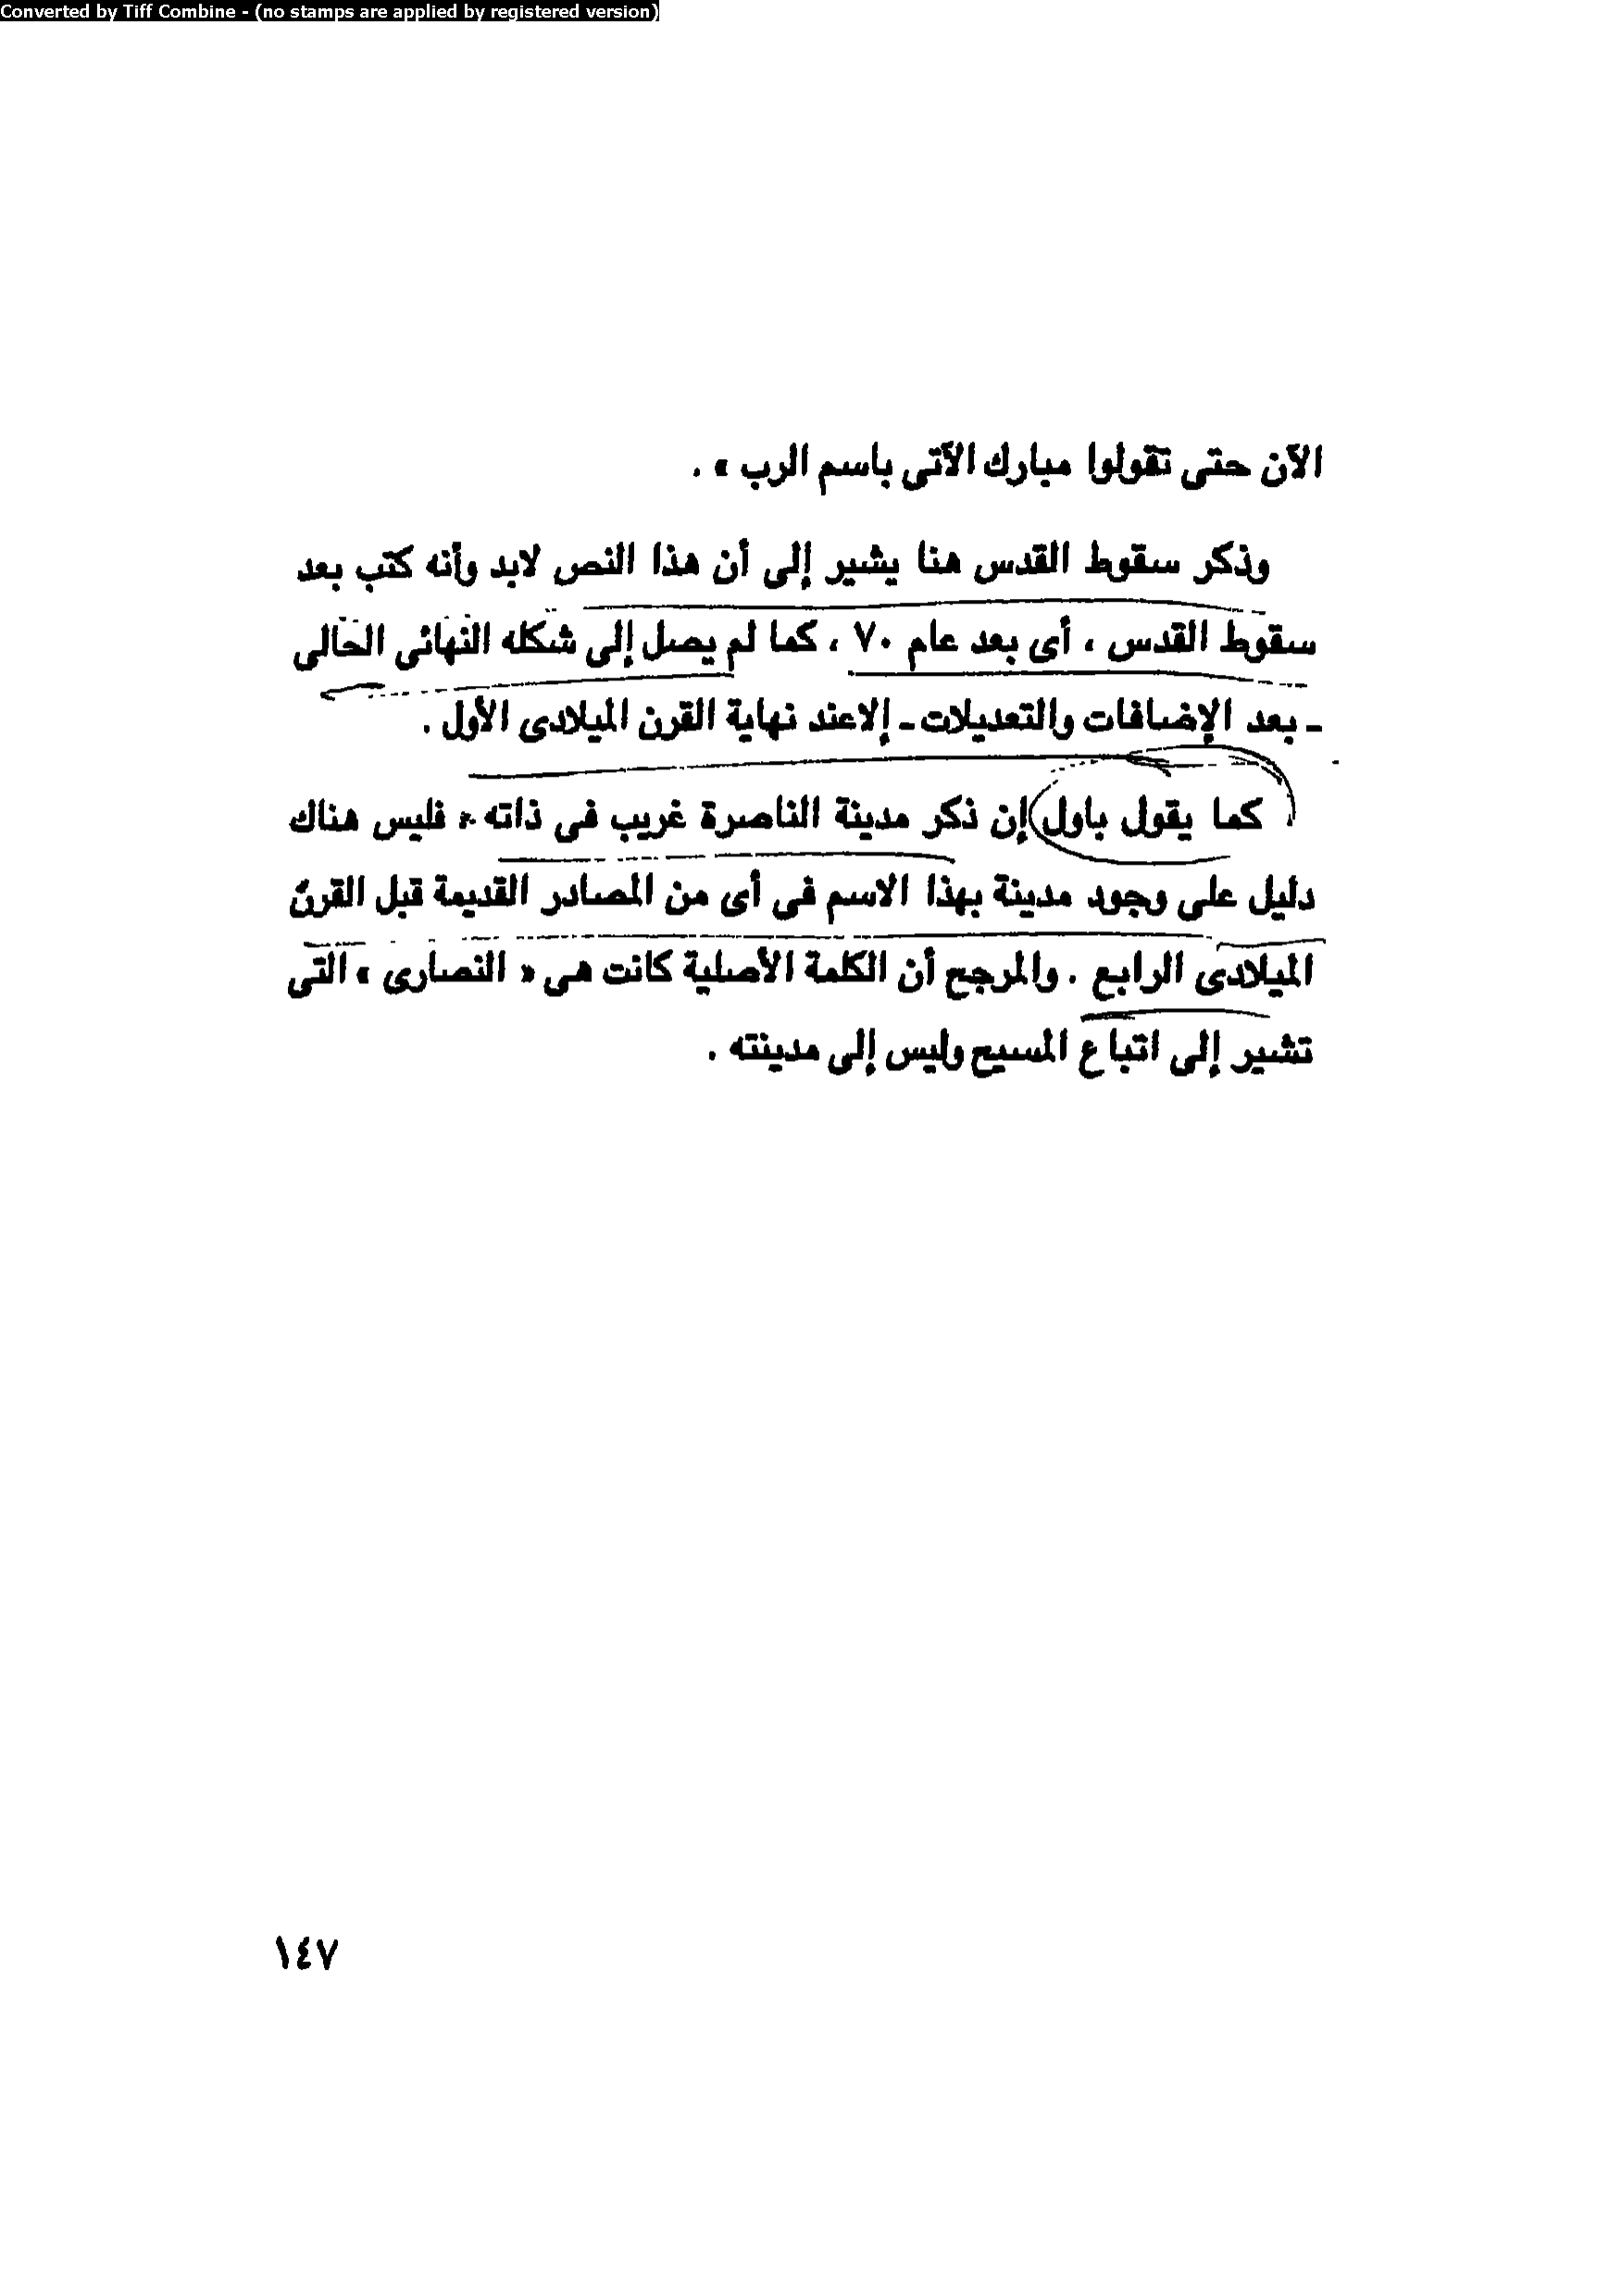 Converted by Tiff Combine - (no stamps are applied by registered version)
الآن حتى تقولوا مبارك الآتى باسم الرب » .
وذكر سقوط القدس هنا يشير إلى أن هذا النص لابد وأنه كتب بعد
سقوط القدس ، أى بعد عام ٧٠ ، كما لم يصل إلى شكله النهائى الحالى
ـ بعد الإضافات والتعديلات ـ إلا عند نهاية القرن الميلادى الأول .
كما يقول باول إن ذكر مدينة الناصرة غريب فى ذاته ، فليس هناك
دليل على وجود مدينة بهذا الاسم فى أى من المصادر القديمة قبل القرن
الميلادى الرابع . والمرجح أن الكلمة الأصلية كانت هى « النصارى » التى
تشير إلى اتباع المسيح وليس إلى مدينته .
١٤٧